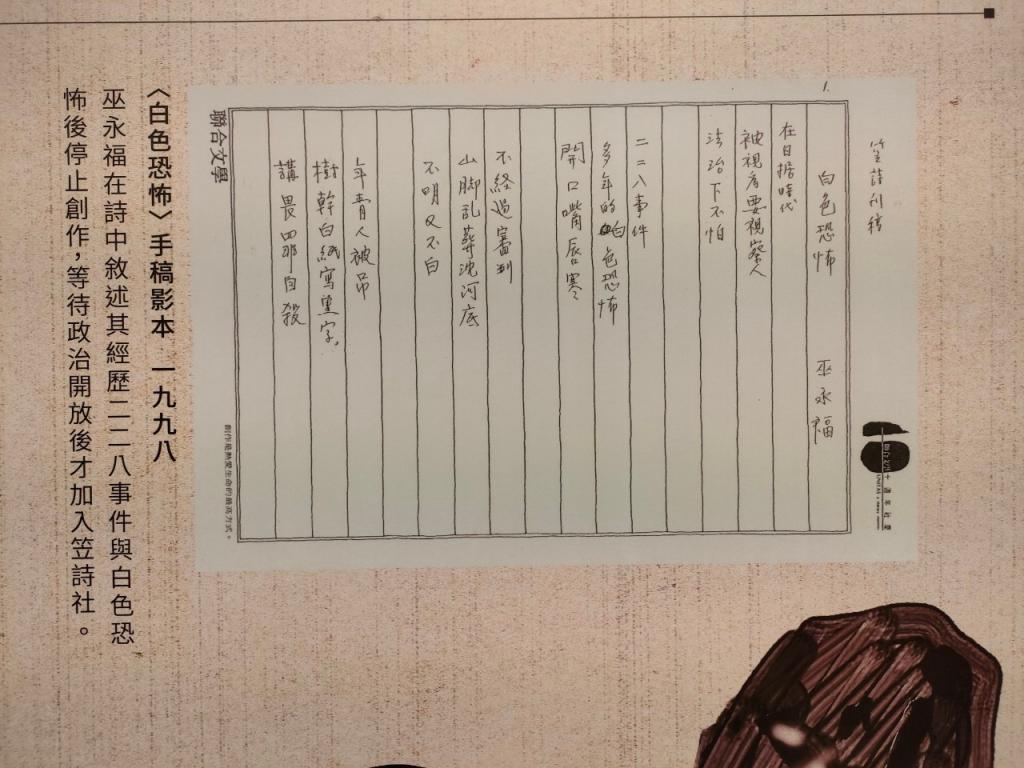 1.
笠詩刊稿
白色恐怖　　巫永福
在日据時代
被視為要視察人
法治下不怕
二二八事件
多年的白色恐怖
開口嘴唇寒
不経過審判
山脚乱葬沈河底
不明又不白
年青人被吊
樹幹白紙寫黑字,
講畏罪自殺
聯合文學
創作是熱愛生命的最高方式。
〈白色恐怖〉手稿影本　一九九八
巫永福在詩中敘述其經歷二二八事件與白色恐
怖後停止創作，等待政治開放後才加入笠詩社。